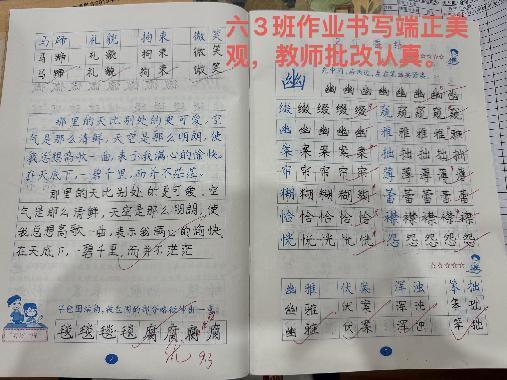 六3班作业书写端正美
观，教师批改认真。
马蹄 礼貌 拘束 微笑
马蹄 礼貌 拘束 微笑
马蹄 礼貌 拘束 微笑
那里的天比别处的更可爱，空
气是那么清鲜，天空是那么明朗，使
我总想高歌一曲，表示我满心的愉快。
在天底下，一碧千里，而并不茫茫。
那里的天比别处的更可爱，空
气是那么清鲜，天空是那么明朗，使
我总想高歌一曲，表示我满心的愉快
在天底下，一碧千里，而并不茫茫
毯毯毯毯毯腐腐腐腐腐
93
幽
幽幽幽幽幽幽幽
缀缀缀缀缀 蔬蔬蔬蔬
幽幽幽幽幽 雅雅雅雅雅
案案案案案 拙拙拙拙拙
帘帘帘帘帘 薄薄薄薄薄
糊糊糊糊糊 蕾蕾蕾蕾蕾
恰恰恰恰恰 襟襟襟襟襟
恍恍恍恍恍 怨怨怨怨怨
幽雅 伏案 浑浊 笨拙
幽雅 伏案 浑浊 笨拙
幽雅 伏案 浑浊 笨拙